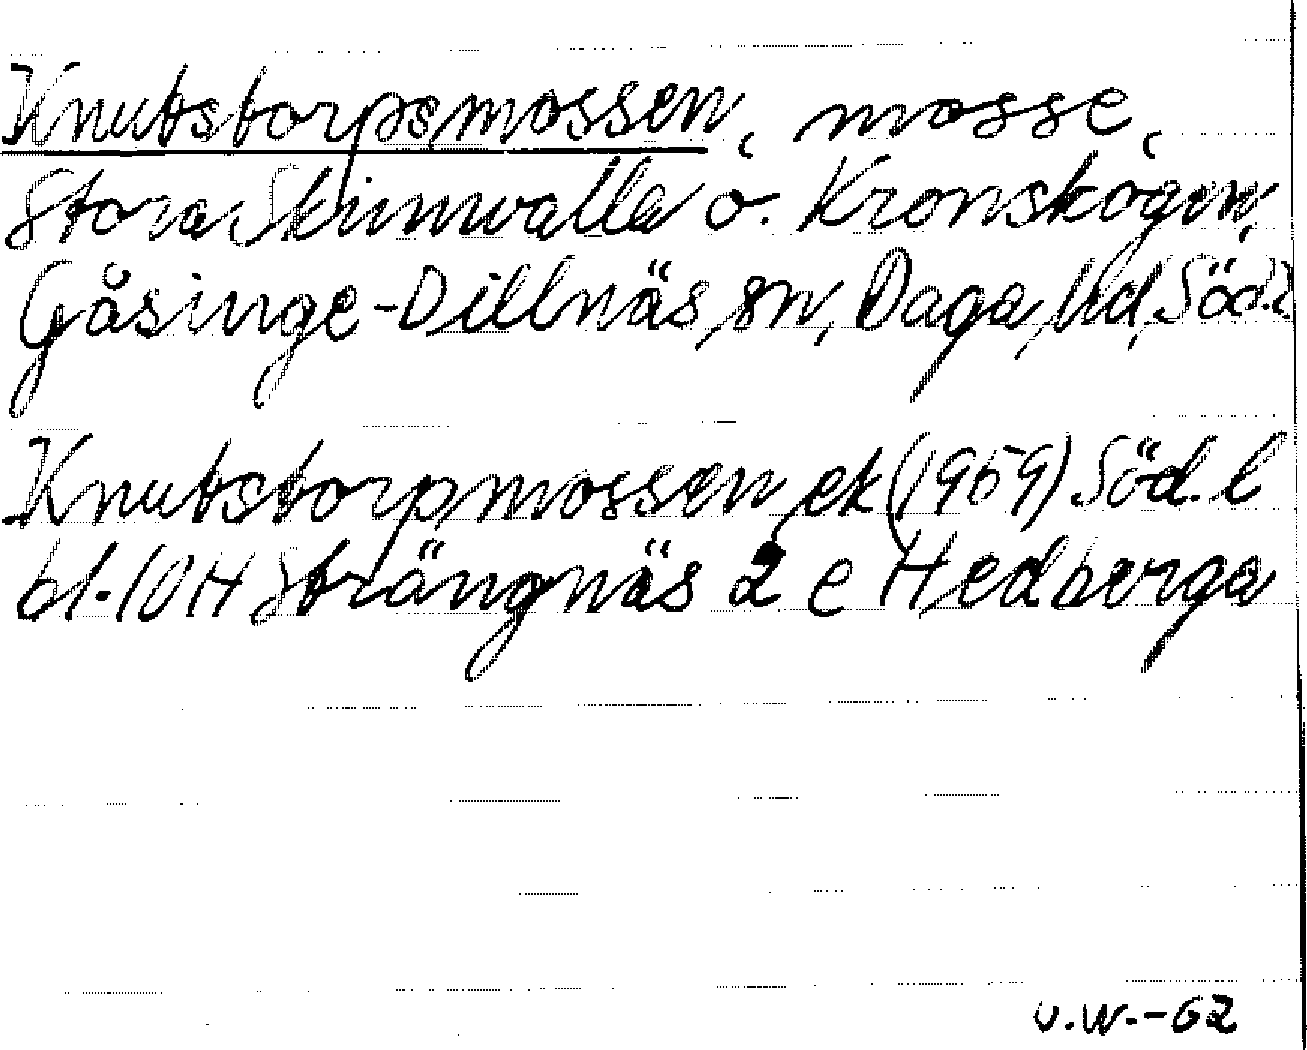 Knutstorpsmossen, mosse,
Stora Skinnvalla o. Kronskogen,
Gåsinge-Dillnäs sn, Daga hd, Söd.l
Knutstorpmossen ek (1959) Söd.l
bl. 10H Strängnäs 2 e Hedberga
v.W.-62